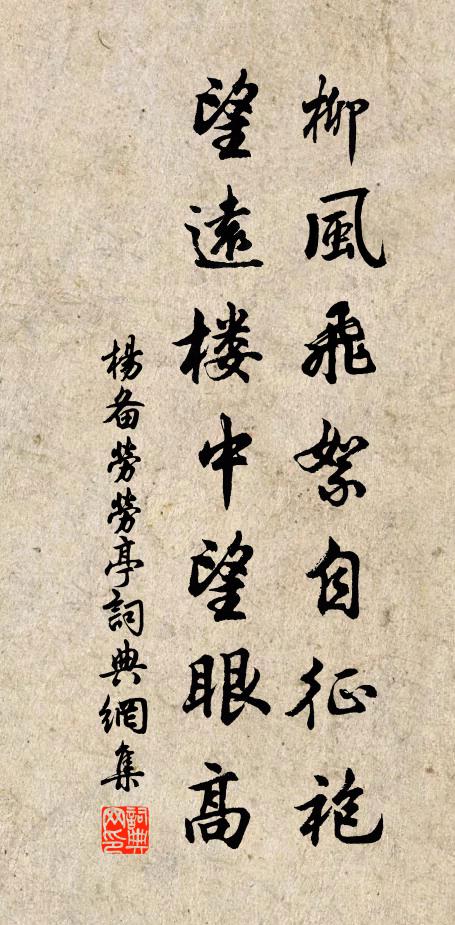 柳風飛絮自征袍
望遠樓中望眼高
楊備勞勞亭詞典網集
詞典網印